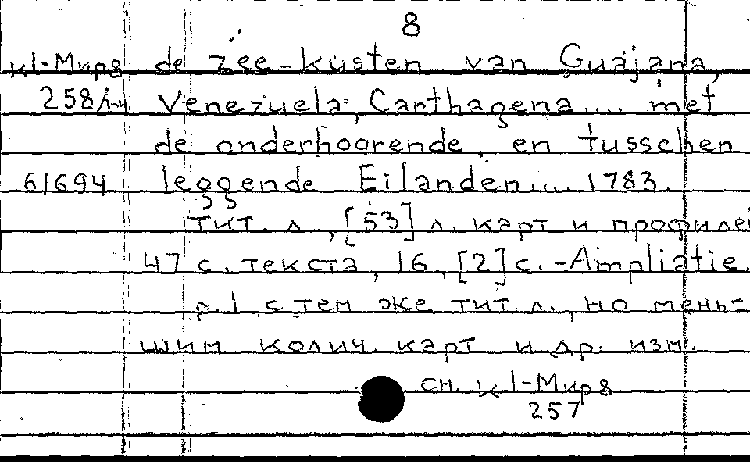 8
кl-Мирв de zee-kusten van Guajana,
258/ Venezuela, Carthagena.... met
de onderhoorende en tusschen
61694 leggende Eilanden.... 1783.
тит. л., [53] л. карт и профилей
47 с. текста, 16, [2] с. - Ampliatie
р. 1 с тем же тит. л., но мень-
шим колич. карт и др. изм.
см. кl-Мирв
257